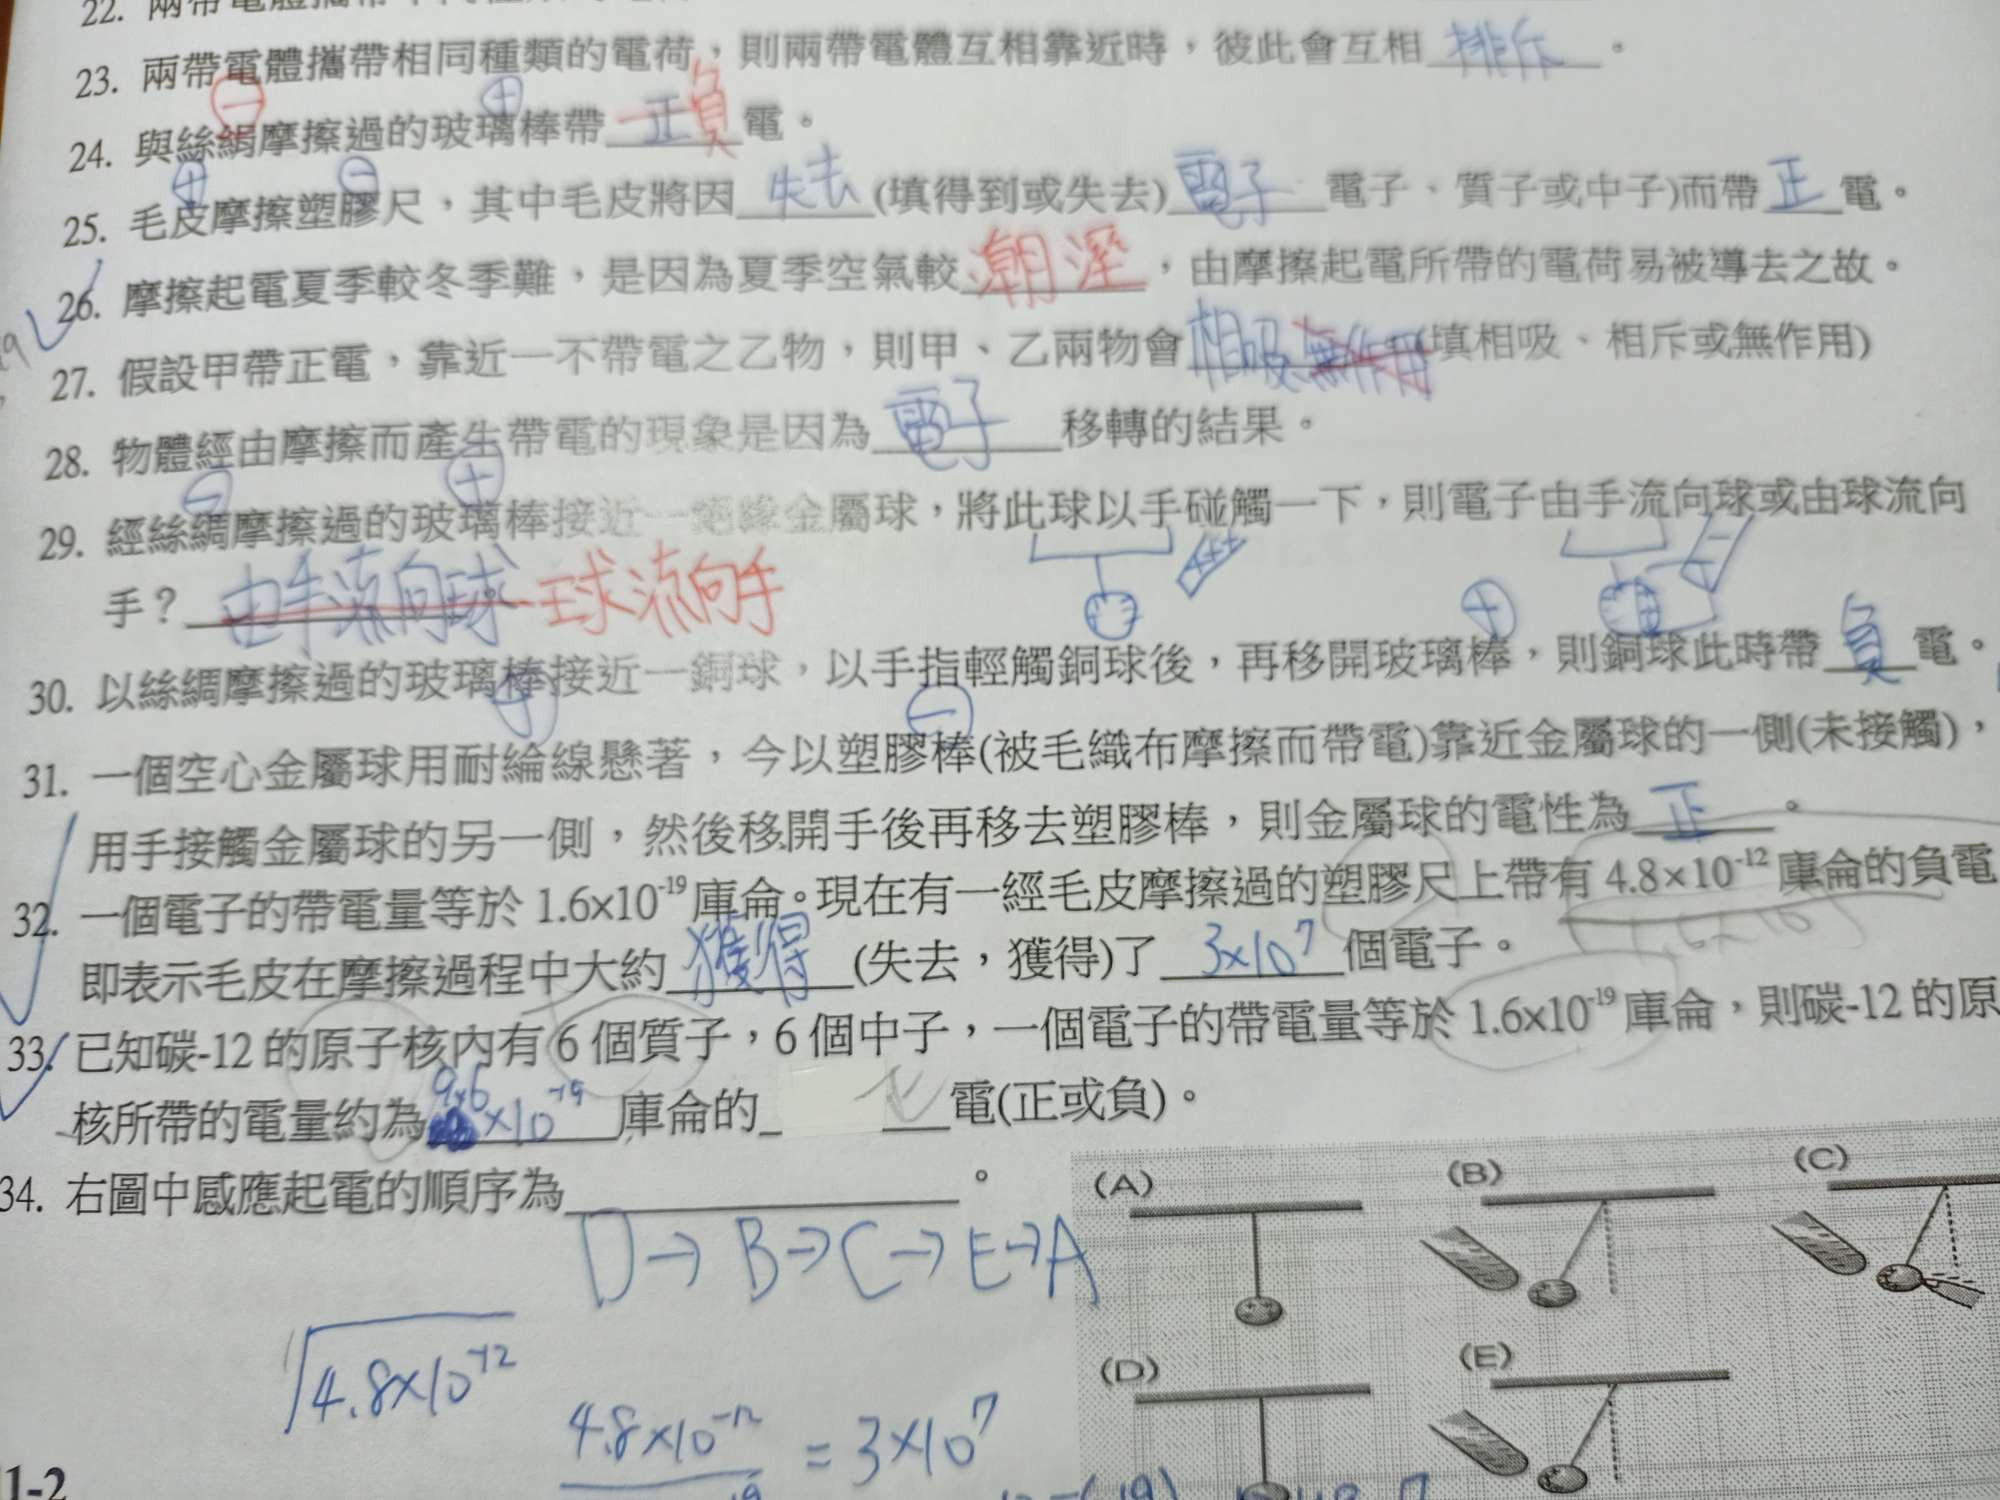 22. 兩帶電體攜帶不同種類的電荷
23. 兩帶電體攜帶相同種類的電荷，則兩帶電體互相靠近時，彼此會互相 排斥 。
⊖ ⊕
24. 與絲絹摩擦過的玻璃棒帶 正負 電。
⊕ ⊖
25. 毛皮摩擦塑膠尺，其中毛皮將因 失去 (填得到或失去) 電子 電子、質子或中子)而帶 正 電。
26. 摩擦起電夏季較冬季難，是因為夏季空氣較 潮溼 ，由摩擦起電所帶的電荷易被導去之故。
27. 假設甲帶正電，靠近一不帶電之乙物，則甲、乙兩物會 相吸 無作用 (填相吸、相斥或無作用)
28. 物體經由摩擦而產生帶電的現象是因為 電子 移轉的結果。
⊖ ⊕
29. 經絲綢摩擦過的玻璃棒接近一絕緣金屬球，將此球以手碰觸一下，則電子由手流向球或由球流向
手？ 由手流向球 球流向手
⊕
30. 以絲綢摩擦過的玻璃棒接近一銅球，以手指輕觸銅球後，再移開玻璃棒，則銅球此時帶 負 電。
⊕ ⊖
31. 一個空心金屬球用耐綸線懸著，今以塑膠棒(被毛織布摩擦而帶電)靠近金屬球的一側(未接觸)，
用手接觸金屬球的另一側，然後移開手後再移去塑膠棒，則金屬球的電性為 正 。
32. 一個電子的帶電量等於 1.6x10⁻¹⁹ 庫侖。現在有一經毛皮摩擦過的塑膠尺上帶有 4.8×10⁻¹² 庫侖的負電
即表示毛皮在摩擦過程中大約 獲得 (失去，獲得)了 3x10⁷ 個電子。
33. 已知碳-12 的原子核內有 6 個質子，6 個中子，一個電子的帶電量等於 1.6x10⁻¹⁹ 庫侖，則碳-12 的原
核所帶的電量約為 9.6 ×10⁻¹⁹ 庫侖的 電(正或負)。
34. 右圖中感應起電的順序為 。
D→ B→C→E→A
(A) (B) (C)
(D) (E)
4.8×10⁻¹²
4.8×10⁻¹² = 3×10⁷
1-2